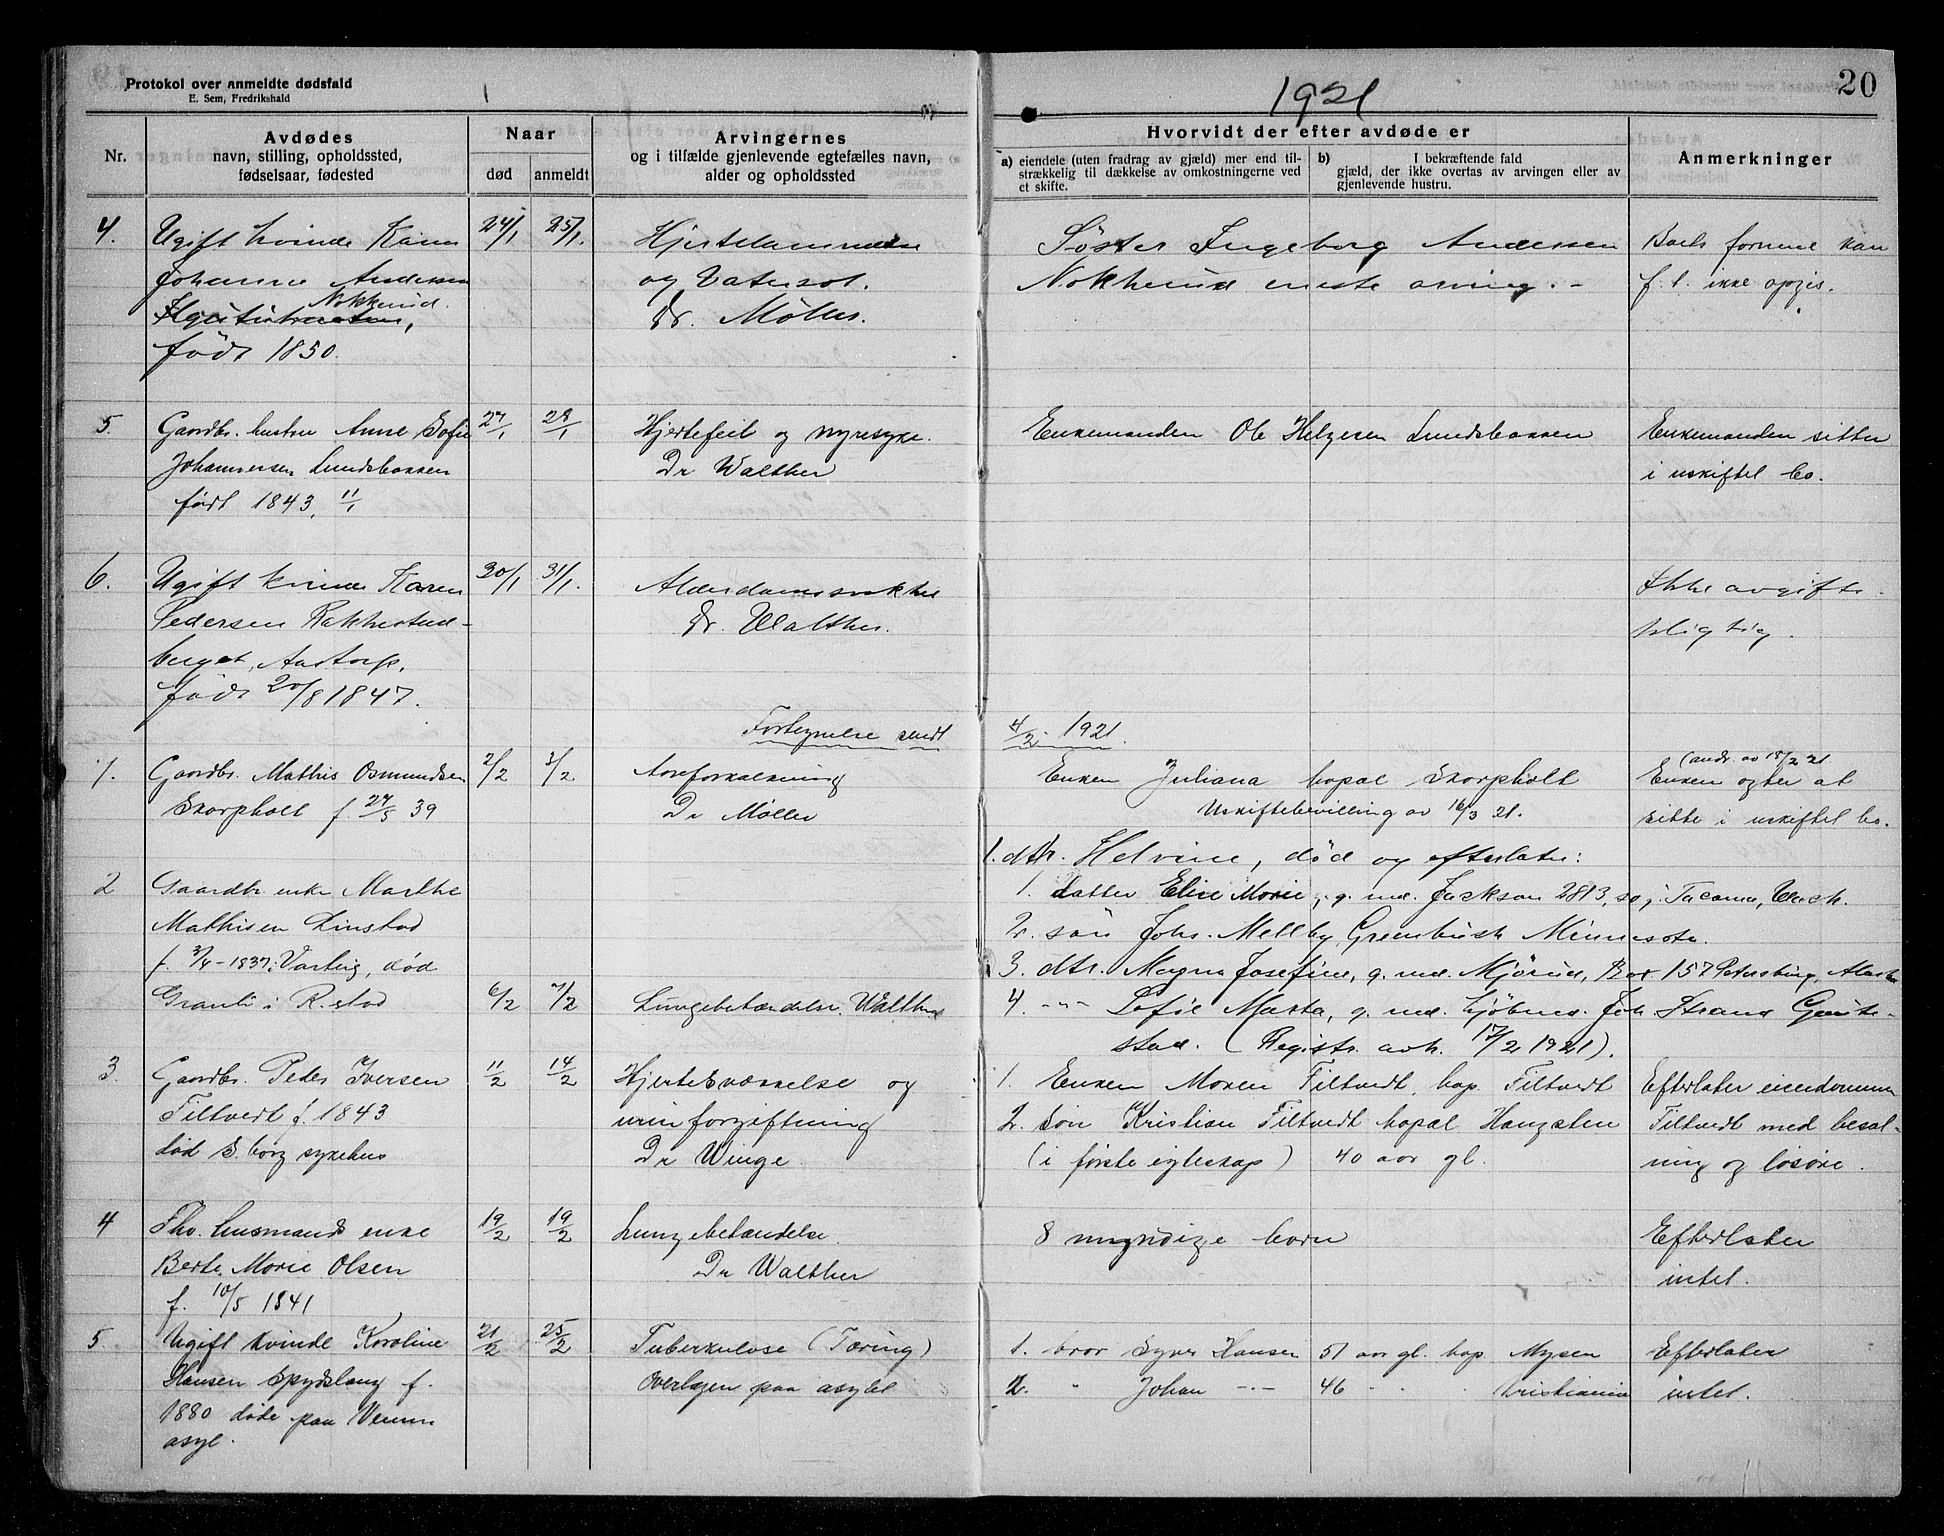 Protokol over anmeldte dødsfald
E. Sem, Fredrikshald
1921
20
Nr.
Avdødes
navn, stilling, opholdssted,
fødselsaar, fødested
Naar
død
anmeldt
Arvingernes
og i tilfælde gjenlevende egtefælles navn,
alder og opholdssted
Hvorvidt der efter avdøde er
a) eiendele (uten fradrag av gjæld) mer end til-
strækkelig til dækkelse av omkostningerne ved
et skifte.
b) I bekræftende fald
gjæld, der ikke overtas av arvingen eller av
gjenlevende hustru.
Anmerkninger
4.
Ugift kvinde Karen
Johanne Andersen
Nokkerud.
født 1850.
24/1
25/1.
Hjertelammelse
og Vatersot.
Dr. Møller.
Søster Ingeborg Andersen
Nokkerud eneste arving. -
Boets formue kan
f. t. ikke opgis.
5.
Gaardbr. hustru Anne Sofie
Johannersen Lundsbakken
født 1843, 11/1
27/1
28/1
Hjertefeil og nyresyke.
Dr Walther
Enkemanden Ole Helgesen Lundsbakken
Enkemanden sitter
i uskiftet bo.
6.
Ugift kvinde Karen
Pedersen Rakkestad-
berget, Aastorp.
født 20/8 1847.
30/1
31/1.
Alderdomssvakhet
Dr. Walther.
Ikke avgifts-
pligtig.
Fortegnelse sendt
4/2 - 1921.
1.
Gaardbr. Mathis Osmundsen
Skorpholt f. 27/5 39
2/2
3/2
Aareforkalkning
Dr Møller
Enken Juliana bopæl Skorpholt
Uskiftebevilling av 16/3 21.
(andr. av 18/2 21
Enken agter at
sitte i uskiftet bo.
2
Gaardbr. enke Marthe
Mathisen Linstad
f. 3/4 - 1837, Varteig, død
Granli i R.stad
6/2
7/2
Lungebetændelse, Walther
1. dtr. Helvine, død og efterlater:
1. datter Elise Marie, g. md. Jackson 2813, so j. Tacoma, Wash.
2. søn Johs. Mellby, Greenbush Minnesota.
3. dtr. Magna Josefine, g. md. Mjørud, Box 157 Petersburg, Alaska
4. -"- Sofie Marta, g. md. kjøbmd. Joh. Strand Gaute-
stad. (Registr. avh. 17/2 1921).
3.
Gaardbr. Peder Iversen
Tiltvedt f. 1843
død S.borg sykehus
11/2
14/2
Hjertesvækkelse og
urinforgiftning
Dr Winge.
1. Enken Maren Tiltvedt, bop. Tiltvedt
2. søn Kristian Tiltvedt bopæl Hangsten
(i første egteskap) 40 aar gl.
Efterlater eiendommen
Tiltvedt med besæt-
ning og løsøre.
4
Fhv. husmands enke
Berte Marie Olsen
f. 10/5 1841
19/2
19/2
Lungebetændelse.
Dr Walther
8 myndige børn
Efterlater
intet.
5.
Ugift kvinde Karoline
Hansen Spydslaug f.
1880 døde paa Venum
asyl.
21/2
25/2
Tuberkulose (Tæring)
Overlægen paa asylet
1. bror Syver Hansen 51 aar gl. bop. Mysen
2. " Johan -"- 46 " " " Kristiania
Efterlater
intet.